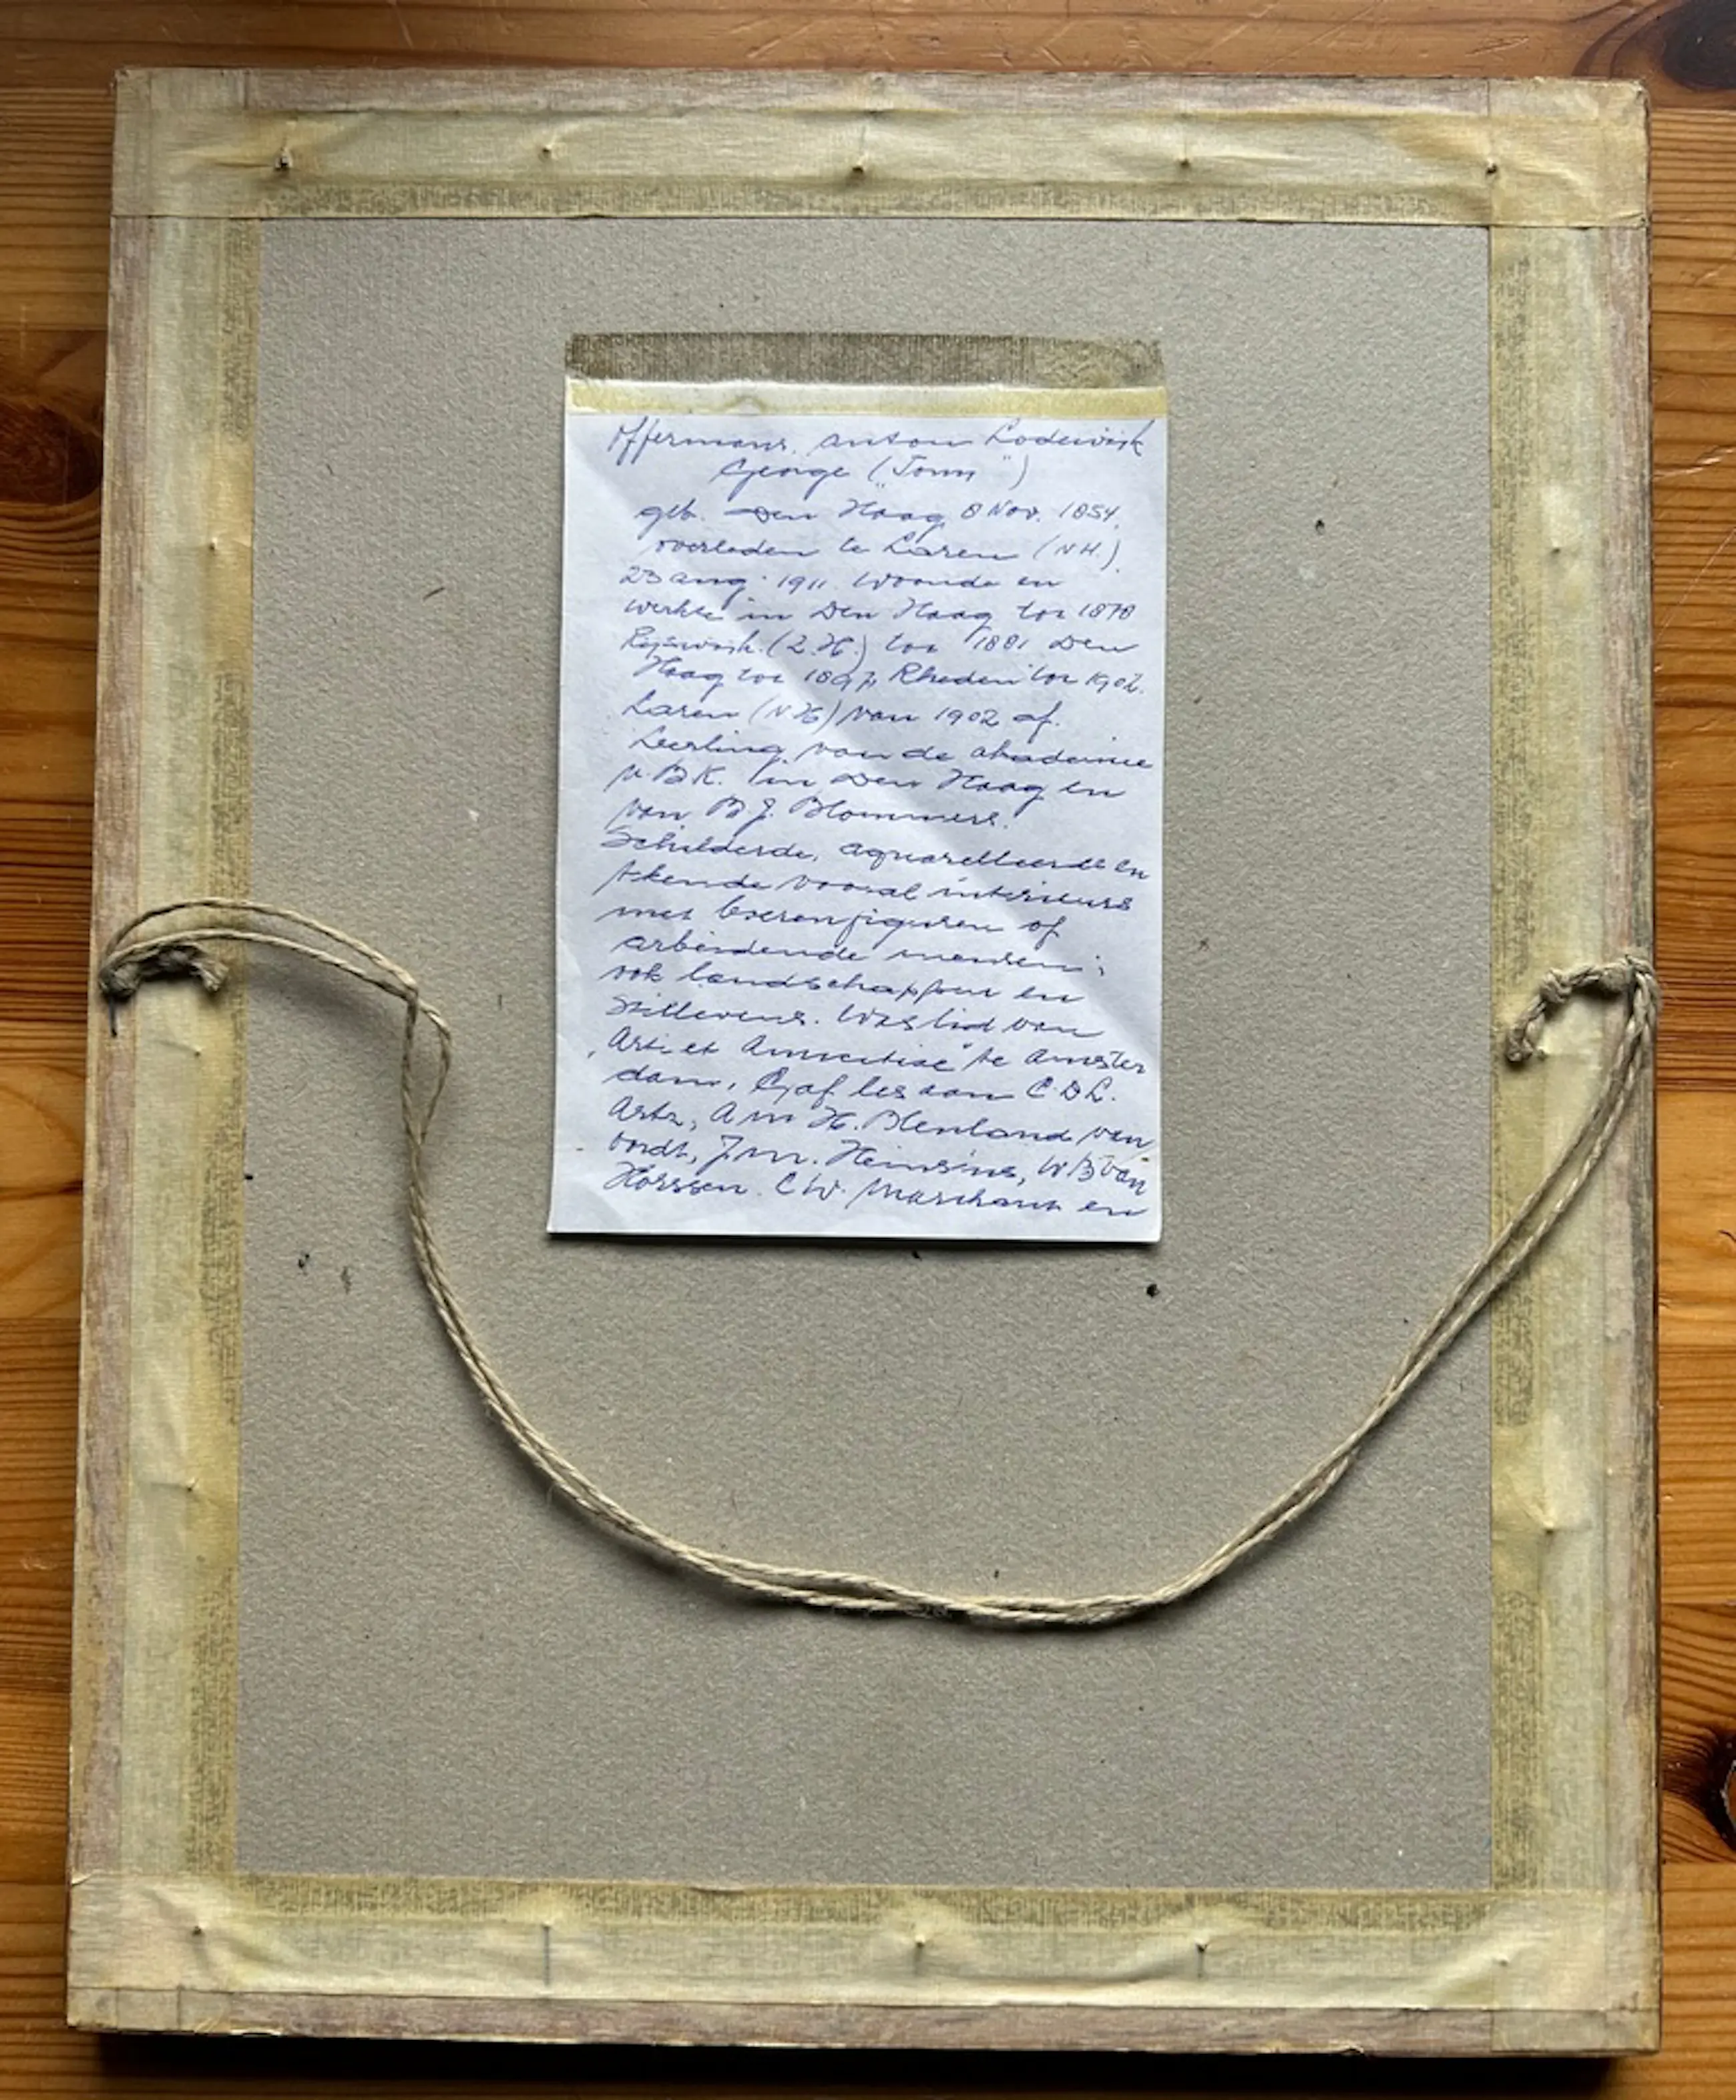 Offermans, Anton Lodewijk
George („Tony")
geb. Den Haag 8 Nov. 1854,
overleden te Laren (NH.)
23 aug. 1911. Woonde en
werkte in Den Haag tot 1878
Rijswijk. (Z.H.) tot 1881 Den
Haag tot 1897, Rheden tot 1902.
Laren (NH) van 1902 af.
Leerling van de akademie
v. B.K. in Den Haag en
van B.J. Blommers.
Schilderde, aquarelleerde en
tekende vooral interieurs
met boerenfiguren of
arbeidende mensen;
ook landschappen en
stillevens. Was lid van
„Arti et Amicitiae" te Amster
dam, Gaf les aan C.D.L.
Artz, A M H. Blenland van
Oordt, J.M. Heinsius, W B van
Horssen. C W. Marchant en